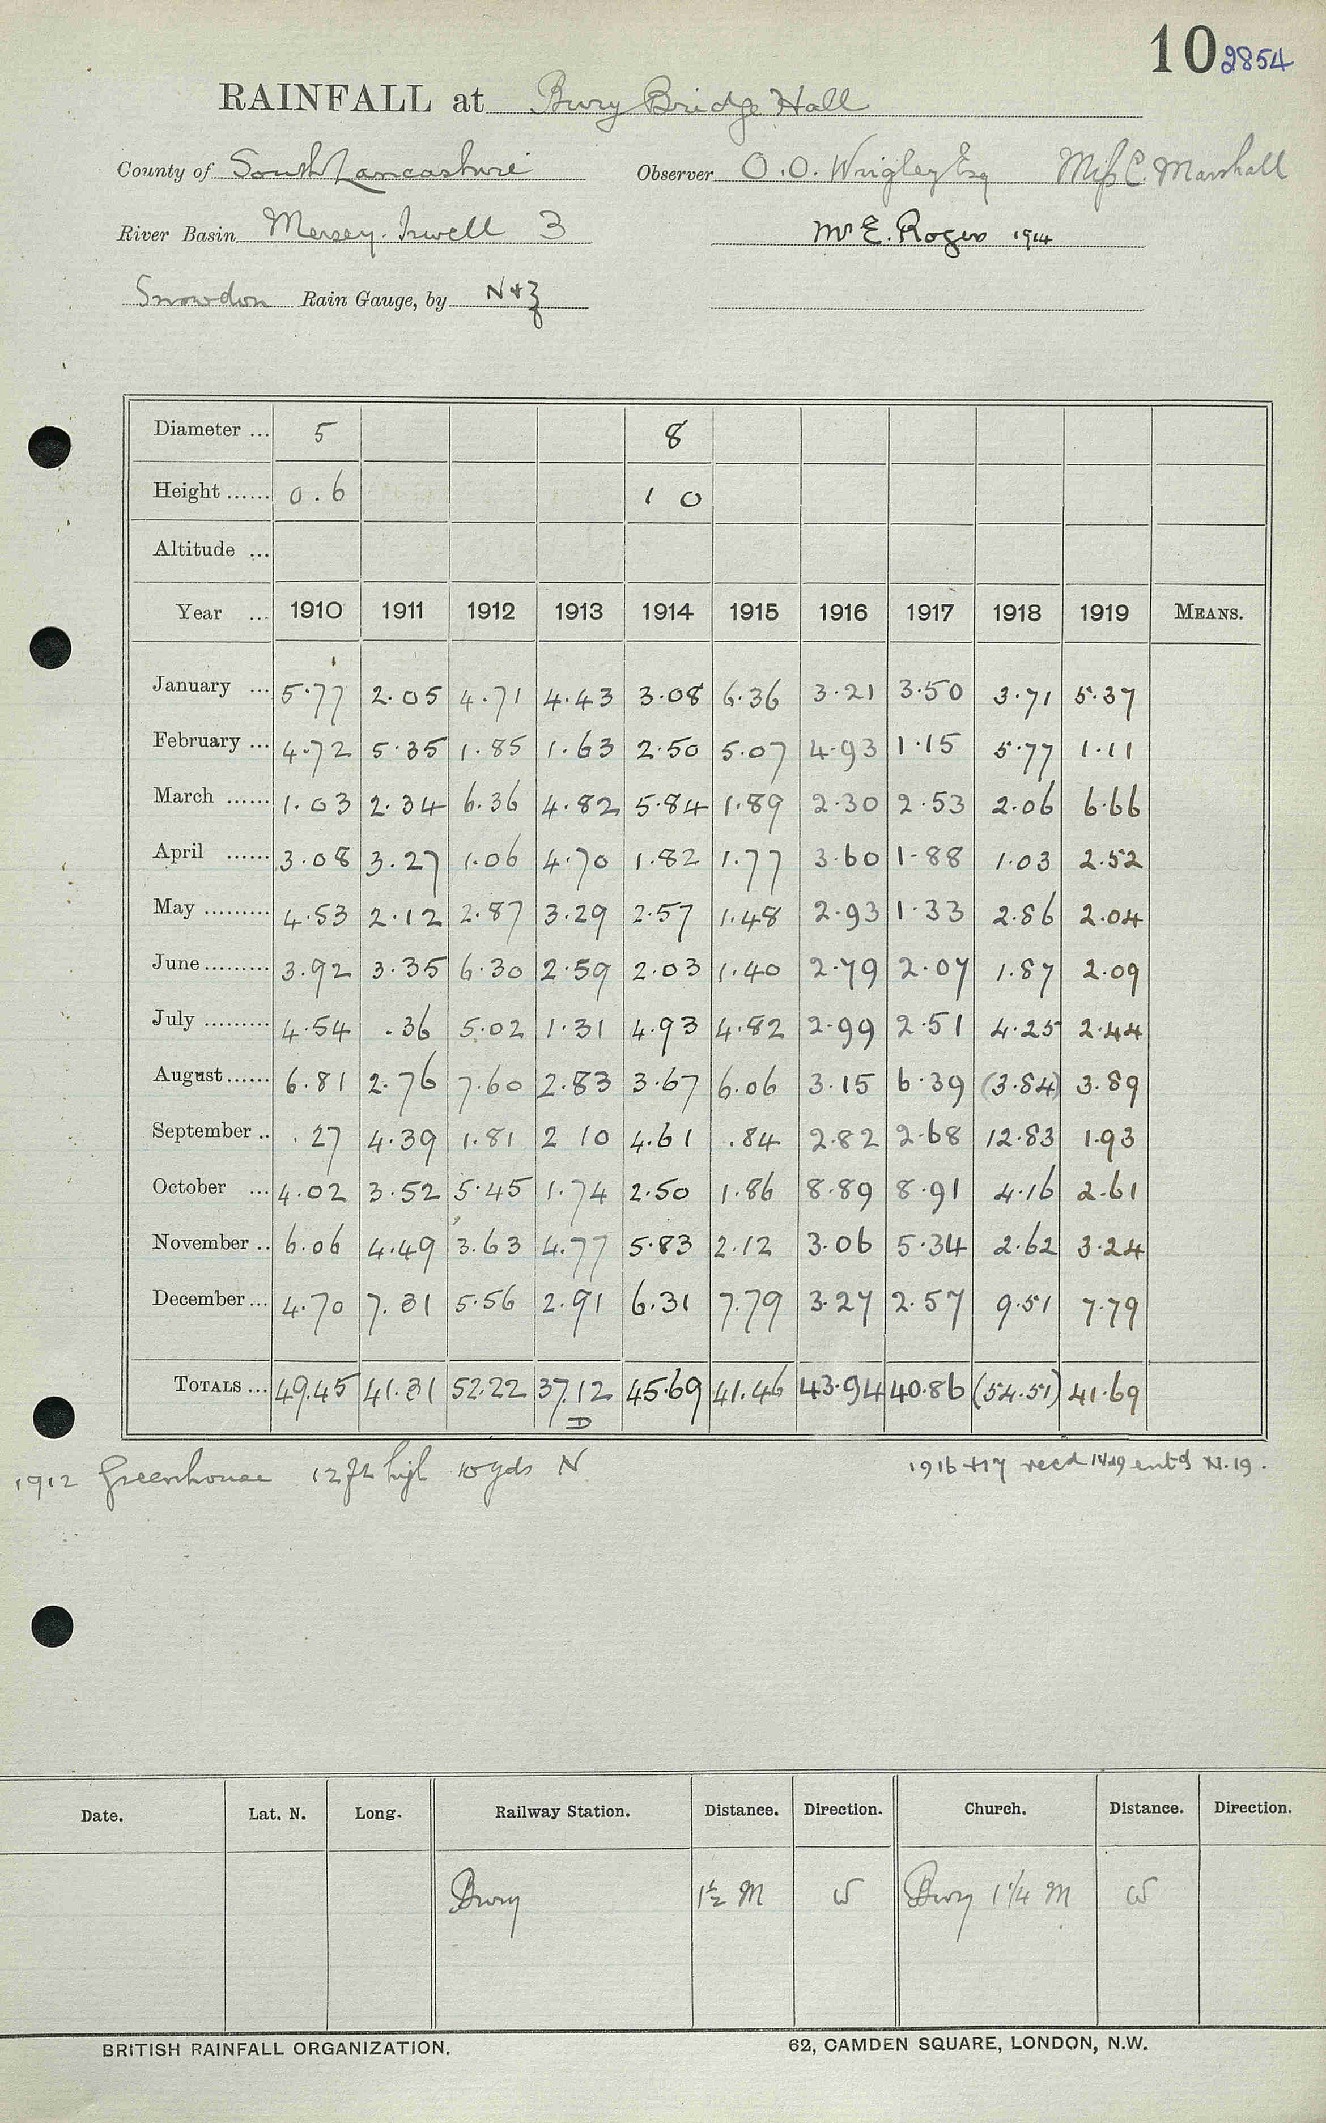 10 2854
RAINFALL at Bury Bridge Hall
County of South Lancashire Observer O.O. Wrigley Esq Miss C. Marshall
River Basin Mersey. Irwell 3 Mr E. Rogers 1914
Snowdon Rain Gauge, by N+Z
Diameter ... 5 8
Height ...... 0.6 1 0
Altitude ...
Year ... 1910 1911 1912 1913 1914 1915 1916 1917 1918 1919 MEANS.
January ... 5.77 2.05 4.71 4.43 3.08 6.36 3.21 3.50 3.71 5.37
February ... 4.72 5.35 1.85 1.63 2.50 5.07 4.93 1.15 5.77 1.11
March ...... 1.03 2.34 6.36 4.82 5.84 1.89 2.30 2.53 2.06 6.66
April ...... 3.08 3.27 1.06 4.70 1.82 1.77 3.60 1.88 1.03 2.52
May ......... 4.53 2.12 2.87 3.29 2.57 1.48 2.93 1.33 2.86 2.04
June ......... 3.92 3.35 6.30 2.59 2.03 1.40 2.79 2.07 1.87 2.09
July ......... 4.54 .36 5.02 1.31 4.93 4.82 2.99 2.51 4.25 2.44
August ...... 6.81 2.76 7.60 2.83 3.67 6.06 3.15 6.39 (3.84) 3.89
September .. .27 4.39 1.81 2 10 4.61 .84 2.82 2.68 12.83 1.93
October ... 4.02 3.52 5.45 1.74 2.50 1.86 8.89 8.91 4.16 2.61
November .. 6.06 4.49 3.63 4.77 5.83 2.12 3.06 5.34 2.62 3.24
December ... 4.70 7.31 5.56 2.91 6.31 7.79 3.27 2.57 9.51 7.79
TOTALS ... 49.45 41.31 52.22 37.12 45.69 41.46 43.94 40.86 (54.51) 41.69
D
1912 Greenhouse 12 ft high 10 yds N 1916 +17 recd entd N.19.
Date. Lat. N. Long. Railway Station. Distance. Direction. Church. Distance. Direction.
Bury 1½ M W Bury 1¼ M W
BRITISH RAINFALL ORGANIZATION. 62, CAMDEN SQUARE, LONDON, N.W.